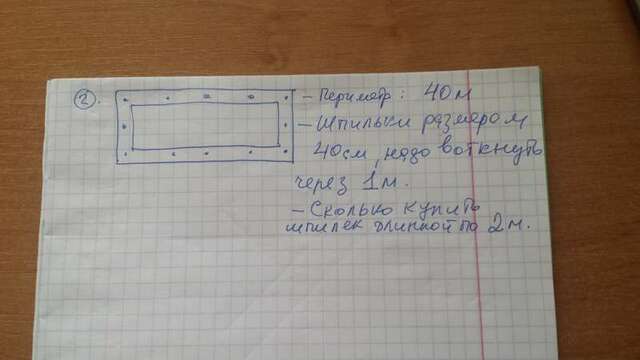 2.
- Периметр: 40м
- Шпильки размером
40см, надо воткнуть
через 1м.
- Сколько купить
шпилек длинной по 2м.